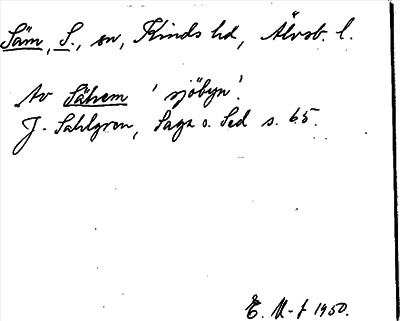 Säm, S., sn, Kinds hd, Älvsb. l.
Av Sähem 'sjöbyn'.
J. Sahlgren, Saga o. Sed s. 65.
E. M-f 1950.